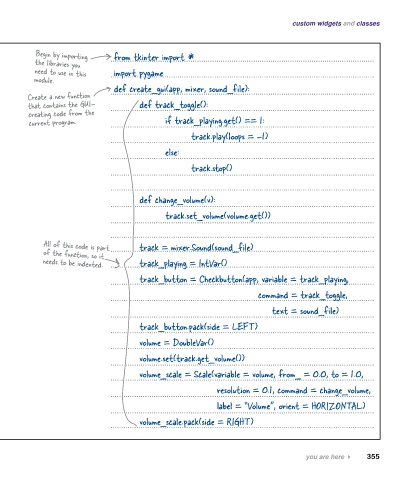 custom widgets and classes
Begin by importing
the libraries you
need to use in this
module.
from tkinter import *
import pygame
Create a new function
that contains the GUI-
creating code from the
current program.
def create_gui(app, mixer, sound_file):
def track_toggle():
if track_playing.get() == 1:
track.play(loops = -1)
else:
track.stop()
def change_volume(v):
track.set_volume(volume.get())
All of this code is part
of the function, so it
needs to be indented.
track = mixer.Sound(sound_file)
track_playing = IntVar()
track_button = Checkbutton(app, variable = track_playing,
command = track_toggle,
text = sound_file)
track_button.pack(side = LEFT)
volume = DoubleVar()
volume.set(track.get_volume())
volume_scale = Scale(variable = volume, from_ = 0.0, to = 1.0,
resolution = 0.1, command = change_volume,
label = "Volume", orient = HORIZONTAL)
volume_scale.pack(side = RIGHT)
you are here ▸ 355